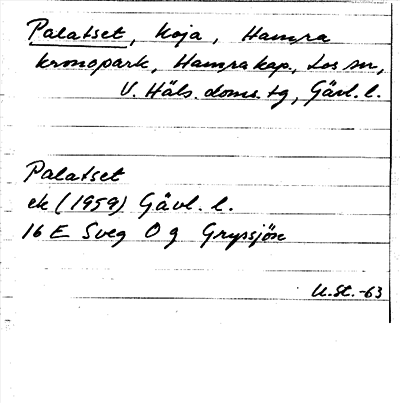 Palatset, koja, Hamra
kronopark, Hamra kap., Los sn,
V. Häls. doms. tg, Gävl. l.
Palatset
ek (1959) Gävl. l.
16 E Sveg O g Gryssjön
U.St. -63